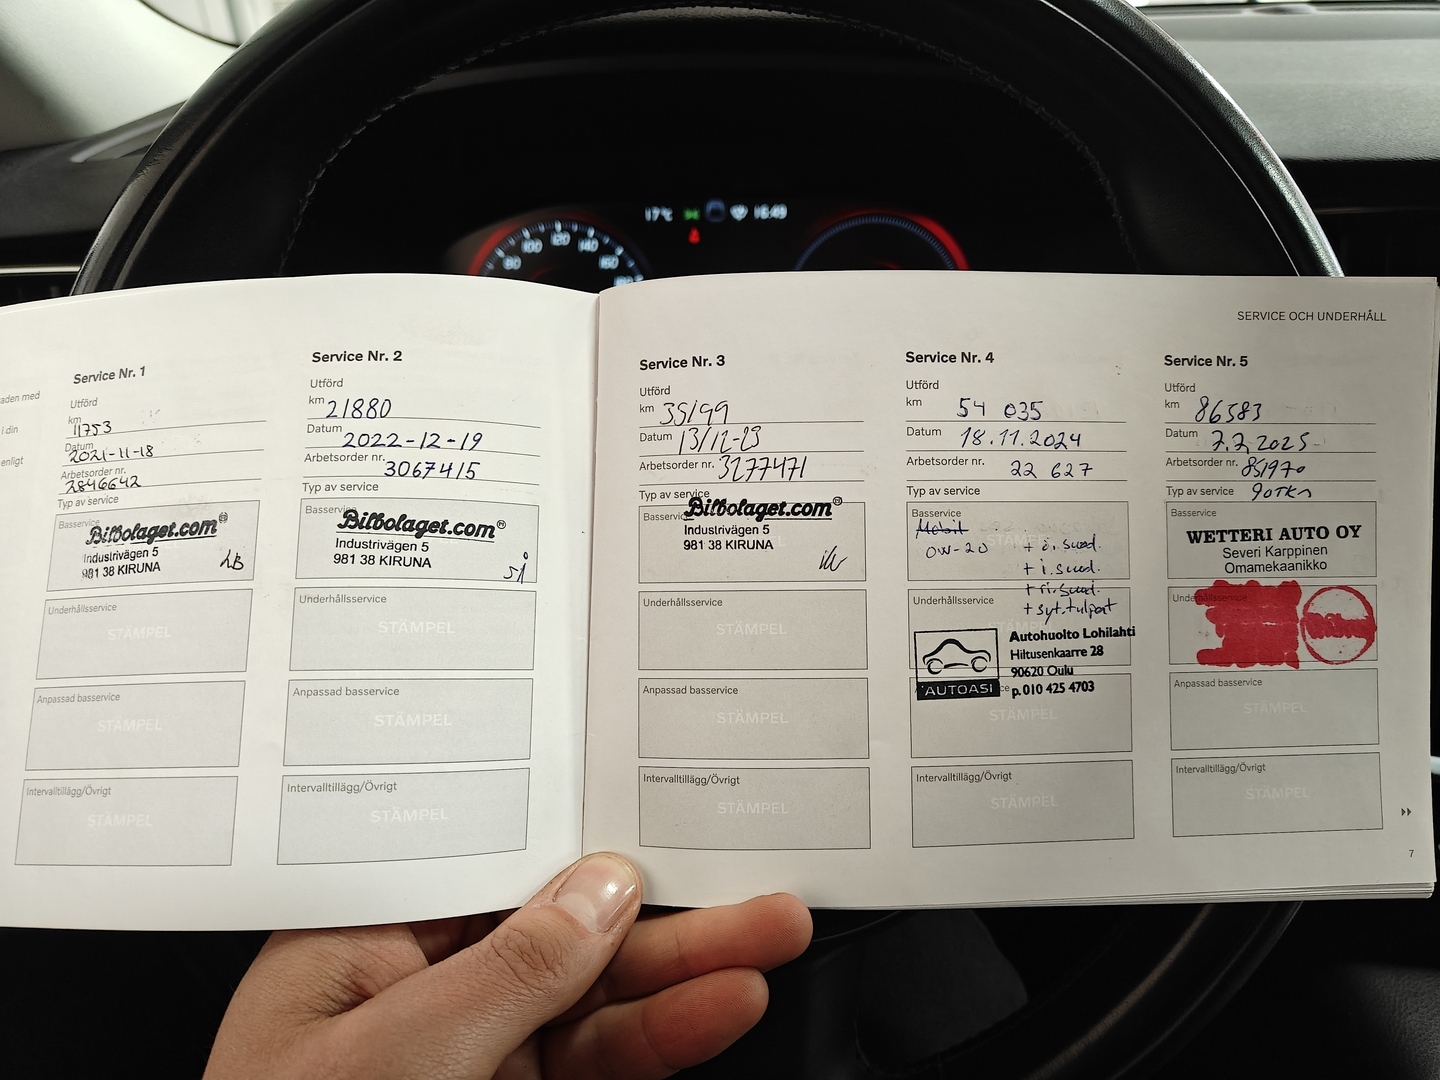 17°C 16:49
80 100 120 140 160
SERVICE OCH UNDERHÅLL
aden med
i din
enligt
Service Nr. 1
Utförd
km 11753
Datum 2021-11-18
Arbetsorder nr. 2846642
Typ av service
Basservice
Bilbolaget.com®
Industrivägen 5
981 38 KIRUNA
Underhållsservice
STÄMPEL
Anpassad basservice
STÄMPEL
Intervalltillägg/Övrigt
STÄMPEL
Service Nr. 2
Utförd
km 21880
Datum 2022-12-19
Arbetsorder nr. 3067415
Typ av service
Basservice
Bilbolaget.com®
Industrivägen 5
981 38 KIRUNA
Underhållsservice
STÄMPEL
Anpassad basservice
STÄMPEL
Intervalltillägg/Övrigt
STÄMPEL
Service Nr. 3
Utförd
km 35199
Datum 13/12-23
Arbetsorder nr. 3277471
Typ av service
Basservice
Bilbolaget.com®
Industrivägen 5
981 38 KIRUNA
Underhållsservice
STÄMPEL
Anpassad basservice
STÄMPEL
Intervalltillägg/Övrigt
STÄMPEL
Service Nr. 4
Utförd
km 54 035
Datum 18.11.2024
Arbetsorder nr. 22 627
Typ av service
Basservice
Mobil
0W-20 + ö. suod.
+ i. suod.
+ ri. suod.
Underhållsservice
+ syt. tulpat
AUTOASI
Autohuolto Lohilahti
Hiltusenkaarre 28
90620 Oulu
p. 010 425 4703
STÄMPEL
Intervalltillägg/Övrigt
STÄMPEL
Service Nr. 5
Utförd
km 86583
Datum 7.7.2025
Arbetsorder nr. 851970
Typ av service 90tkm
Basservice
WETTERI AUTO OY
Severi Karppinen
Omamekaanikko
Underhållsservice
Anpassad basservice
STÄMPEL
Intervalltillägg/Övrigt
STÄMPEL
7